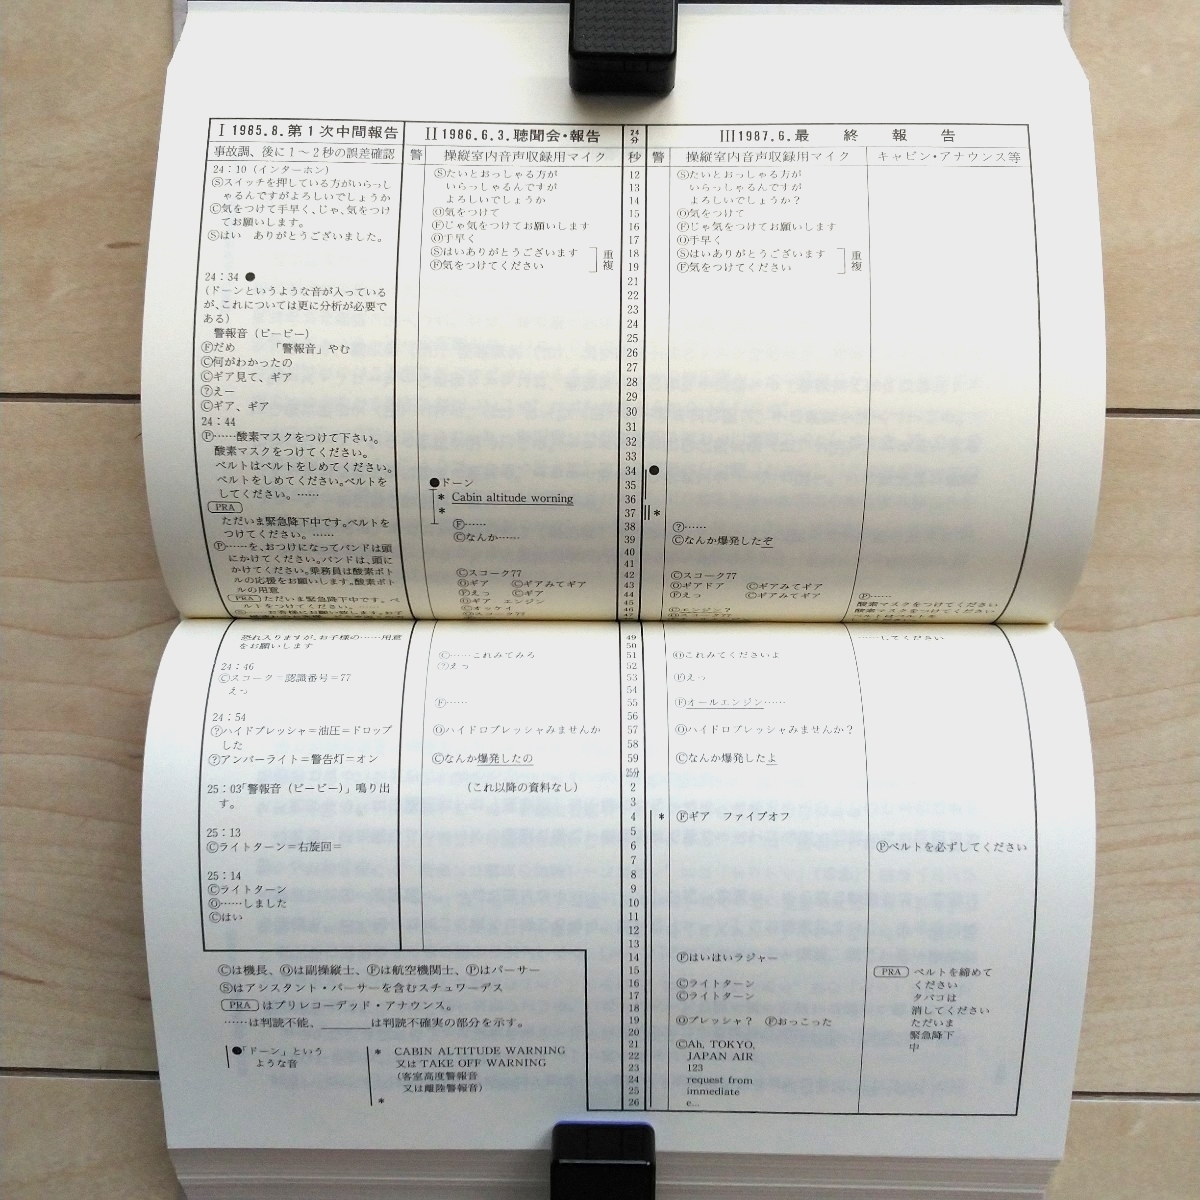 I 1985.8.第1次中間報告
事故調、後に1～2秒の誤差確認
24:10(インターホン)
Ⓢスイッチを押している方がいらっし
ゃるんですがよろしいでしょうか
Ⓒ気をつけて手早く、じゃ、気をつけ
てお願いします。
Ⓢはい ありがとうございました。
24:34 ●
(ドーンというような音が入っている
が、これについては更に分析が必要で
ある)
警報音(ピーピー)
Ⓕだめ 「警報音」やむ
Ⓒ何がわかったの
Ⓒギア見て、ギア
?えー
Ⓒギア、ギア
24:44
Ⓟ……酸素マスクをつけて下さい。
酸素マスクをつけてください。
ベルトはベルトをしめてください。
ベルトをしめてください。ベルトを
してください。……
PRA
ただいま緊急降下中です。ベルトを
つけてください。……
Ⓟ……を、おつけになってバンドは頭
にかけてください。バンドは、頭に
かけてください。乗務員は酸素ボト
ルの応援をお願いします。酸素ボト
ルの用意
PRA ただいま緊急降下中です。ベ
ルトをつけてください。
恐れ入りますが、お子様の……用意
をお願いします
24:46
Ⓒスコーク=認識番号=77
えっ
24:54
?ハイドプレッシャ=油圧=ドロップ
した
?アンバーライト=警告灯=オン
25:03「警報音(ピーピー)」鳴り出
す。
25:13
Ⓒライトターン=右旋回=
25:14
Ⓒライトターン
Ⓞ……しました
Ⓒはい
II 1986.6.3.聴聞会・報告
警 操縦室内音声収録用マイク
Ⓢたいとおっしゃる方が
いらっしゃるんですが
よろしいでしょうか
Ⓞ気をつけて
Ⓕじゃ気をつけてお願いします
Ⓞ手早く
Ⓢはいありがとうございます
Ⓕ気をつけてください
重複
●ドーン
* Cabin altitude worning
*
Ⓕ……
Ⓒなんか……
Ⓒスコーク77
Ⓞギア Ⓒギアみてギア
Ⓕえっ Ⓒギア
Ⓞギア エンジン
Ⓒオッケイィ
Ⓒ……これみてみろ
?えっ
Ⓕ……
Ⓞハイドロプレッシャみませんか
Ⓒなんか爆発したの
(これ以降の資料なし)
24分
秒
12
13
14
15
16
17
18
19
21
22
23
24
25
26
27
28
29
30
31
32
33
34
35
36
37
38
39
40
41
42
43
44
45
49
50
51
52
53
54
55
56
57
58
59
25分
2
3
4
5
6
7
8
9
10
11
12
13
14
15
16
17
18
19
20
21
22
23
24
25
26
III 1987.6.最終報告
警 操縦室内音声収録用マイク
Ⓢたいとおっしゃる方が
いらっしゃるんですが
よろしいでしょうか？
Ⓞ気をつけて
Ⓕじゃ気をつけてお願いします
Ⓞ手早く
Ⓢはいありがとうございます
Ⓕ気をつけてください
重複
●
*
?……
Ⓒなんか爆発したぞ
Ⓒスコーク77
Ⓞギアドア Ⓒギアみてギア
Ⓕえっ Ⓒギアみてギア
Ⓒエンジン？
Ⓞこれみてくださいよ
Ⓕえっ
Ⓕオールエンジン……
Ⓞハイドロプレッシャみませんか？
Ⓒなんか爆発したよ
* Ⓕギア ファイブオフ
Ⓕはいはいラジャー
Ⓒライトターン
Ⓒライトターン
Ⓞプレッシャ？ Ⓕおっこった
ⒸAh, TOKYO,
JAPAN AIR
123
request from
immediate
e...
キャビン・アナウンス等
Ⓟ……
酸素マスクをつけてください
酸素マスクをつけてください
……してください
Ⓟベルトを必ずしてください
PRA ベルトを締めて
ください
タバコは
消してください
ただいま
緊急降下
中
Ⓒは機長、Ⓞは副操縦士、Ⓕは航空機関士、Ⓟはパーサー
Ⓢはアシスタント・パーサーを含むスチュワーデス
PRA はプリレコーデッド・アナウンス。
……は判読不能、＿＿＿は判読不確実の部分を示す。
●「ドーン」という
ような音
* CABIN ALTITUDE WARNING
又は TAKE OFF WARNING
(客室高度警報音
又は離陸警報音)
*